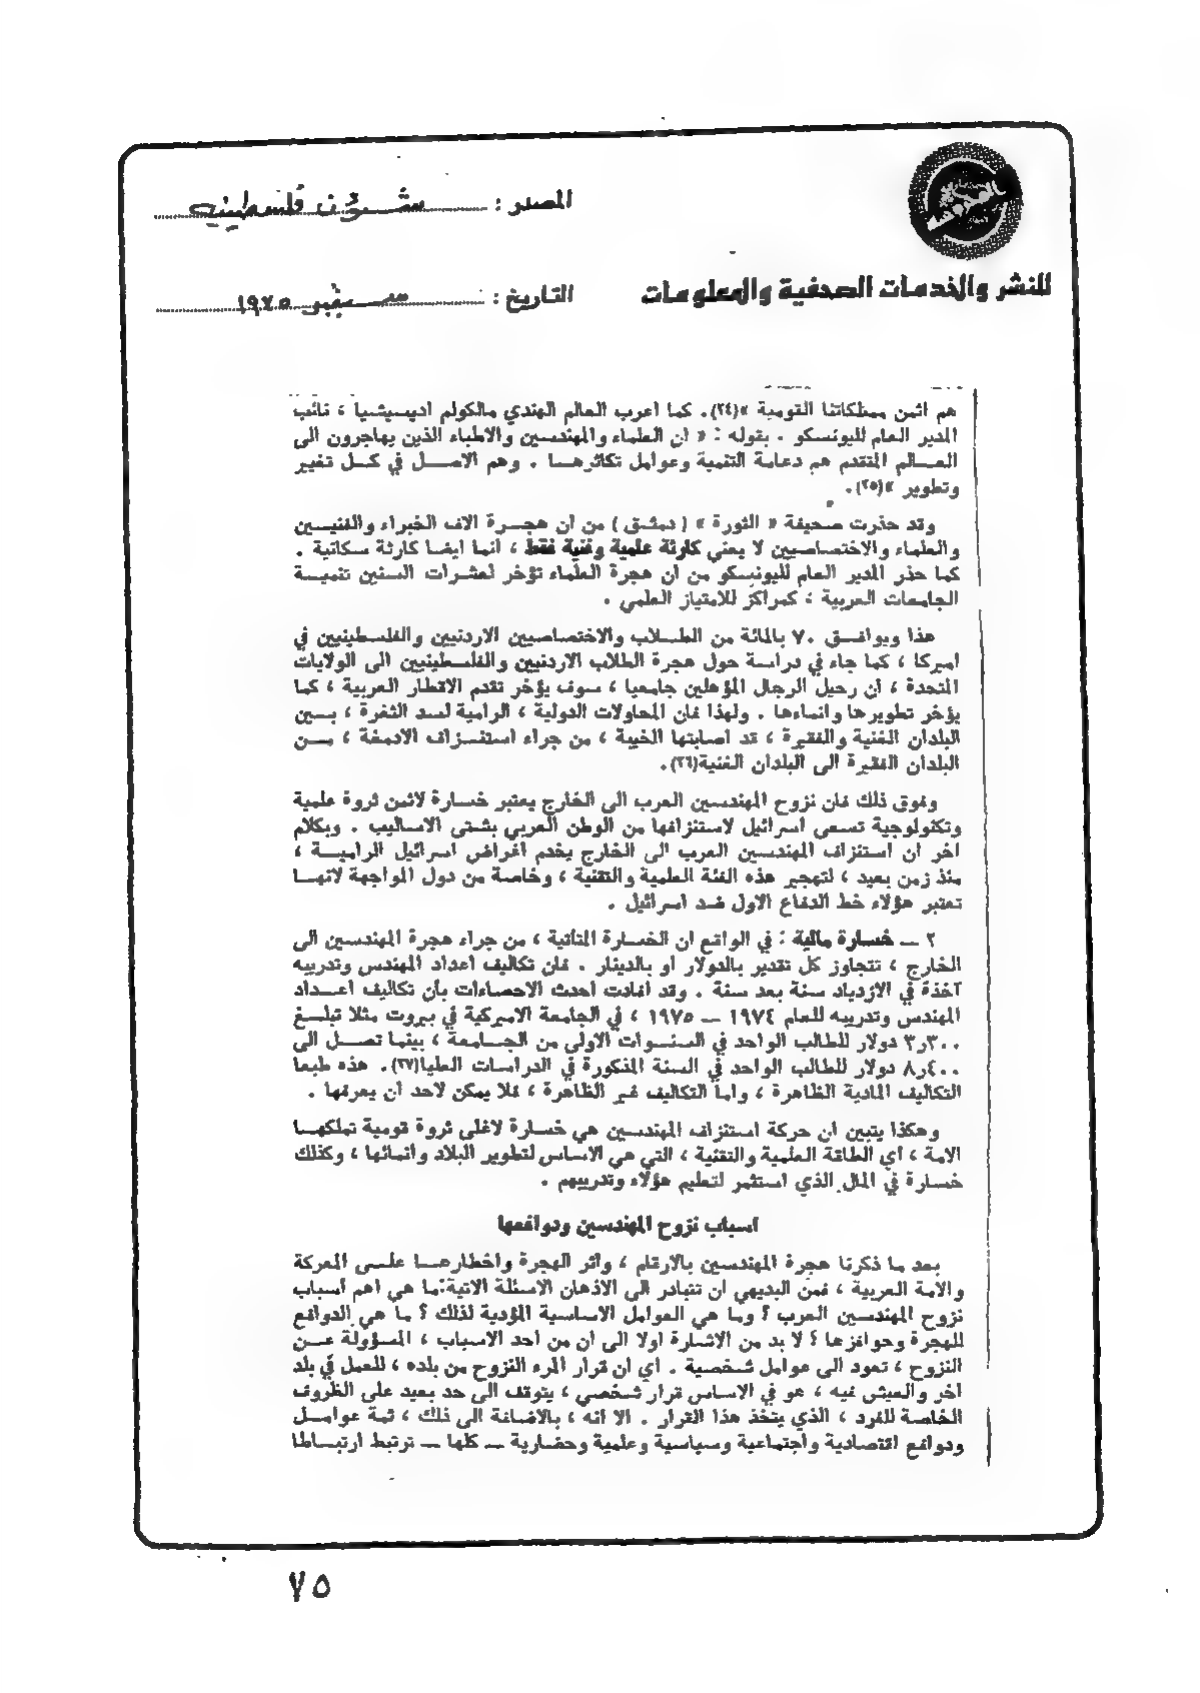 المصدر : شؤون فلسطينية
للنشر والخدمات الصحفية والمعلومات
التاريخ : سبتمبر ١٩٧٥
هم اثمن ممتلكاتنا القومية »(٢٤). كما اعرب العالم الهندي مالكولم اديسيشيا ، نائب
المدير العام لليونسكو . بقوله : « ان العلماء والمهندسين والاطباء الذين يهاجرون الى
العــالم المتقدم هم دعامة التنمية وعوامل تكاثرهــا . وهم الاصــل في كــل تغيير
وتطوير »(٢٥).
وقد حذرت صحيفة « الثورة » ( دمشق ) من ان هجــرة الاف الخبراء والفنيــين
والعلماء والاختصاصيين لا يعني كارثة علمية وفنية فقط ، انما ايضا كارثة سكانية .
كما حذر المدير العام لليونسكو من ان هجرة العلماء تؤخر لعشرات السنين تنميــة
الجامعات العربية ، كمراكز للامتياز العلمي .
هذا ويوافــق ٧٠ بالمائة من الطــلاب والاختصاصيين الاردنيين والفلســطينيين في
اميركا ، كما جاء في دراسة حول هجرة الطلاب الاردنيين والفلسطينيين الى الولايات
المتحدة ، ان رحيل الرجال المؤهلين جامعيا ، سوف يؤخر تقدم الاقطار العربية ، كما
يؤخر تطويرها وانماءها . ولهذا فان المحاولات الدولية ، الرامية لسد الثغرة ، بــين
البلدان الغنية والفقيرة ، قد اصابتها الخيبة ، من جراء استنــزاف الادمغة ، مــن
البلدان الفقيرة الى البلدان الغنية(٢٦).
وفوق ذلك فان نزوح المهندسين العرب الى الخارج يعتبر خسارة لاثمن ثروة علمية
وتكنولوجية تسعى اسرائيل لاستنزافها من الوطن العربي بشتى الاساليب . وبكلام
اخر ان استنزاف المهندسين العرب الى الخارج يخدم اغراض اسرائيل الراميــة ،
منذ زمن بعيد ، لتهجير هذه الفئة العلمية والتقنية ، وخاصة من دول المواجهة لانهــا
تعتبر هؤلاء خط الدفاع الاول ضد اسرائيل .
٢ ــ خسارة مالية : في الواقع ان الخسارة المتأتية ، من جراء هجرة المهندسين الى
الخارج ، تتجاوز كل تقدير بالدولار او بالدينار . فان تكاليف اعداد المهندس وتدريبه
آخذة في الازدياد سنة بعد سنة . وقد افادت احدث الاحصاءات بأن تكاليف اعــداد
المهندس وتدريبه للعام ١٩٧٤ ــ ١٩٧٥ ، في الجامعة الاميركية في بيروت مثلا تبلــغ
٣٫٣٠٠ دولار للطالب الواحد في السنــوات الاولى من الجــامعة ، بينما تصــل الى
٨٫٤٠٠ دولار للطالب الواحد في السنة المذكورة في الدراسات العليا(٢٧). هذه طبعا
التكاليف المادية الظاهرة ، واما التكاليف غير الظاهرة ، فلا يمكن لاحد ان يعرفها .
وهكذا يتبين ان حركة استنزاف المهندسين هي خسارة لاغلى ثروة قومية تملكهــا
الامة ، أي الطاقة العلمية والتقنية ، التي هي الاساس لتطوير البلاد وانمائها ، وكذلك
خسارة في المال الذي استثمر لتعليم هؤلاء وتدريبهم .
اسباب نزوح المهندسين ودوافعها
بعد ما ذكرنا هجرة المهندسين بالارقام ، واثر الهجرة واخطارهــا علــى المعركة
والامة العربية ، فمن البديهي ان تتبادر الى الاذهان الاسئلة الاتية:ما هي اهم أسباب
نزوح المهندسين العرب ؟ وما هي العوامل الاساسية المؤدية لذلك ؟ ما هي الدوافع
للهجرة وحوافزها ؟ لا بد من الاشارة اولا الى ان من احد الاسباب ، المسؤولة عــن
النزوح ، تعود الى عوامل شخصية . اي ان قرار المرء النزوح من بلده ، للعمل في بلد
اخر والعيش فيه ، هو في الاساس قرار شخصي ، يتوقف الى حد بعيد على الظروف
الخاصة للفرد ، الذي يتخذ هذا القرار . الا انه ، بالاضافة الى ذلك ، ثمة عوامــل
ودوافع اقتصادية واجتماعية وسياسية وعلمية وحضارية ــ كلها ــ ترتبط ارتبــاطا
٧٥